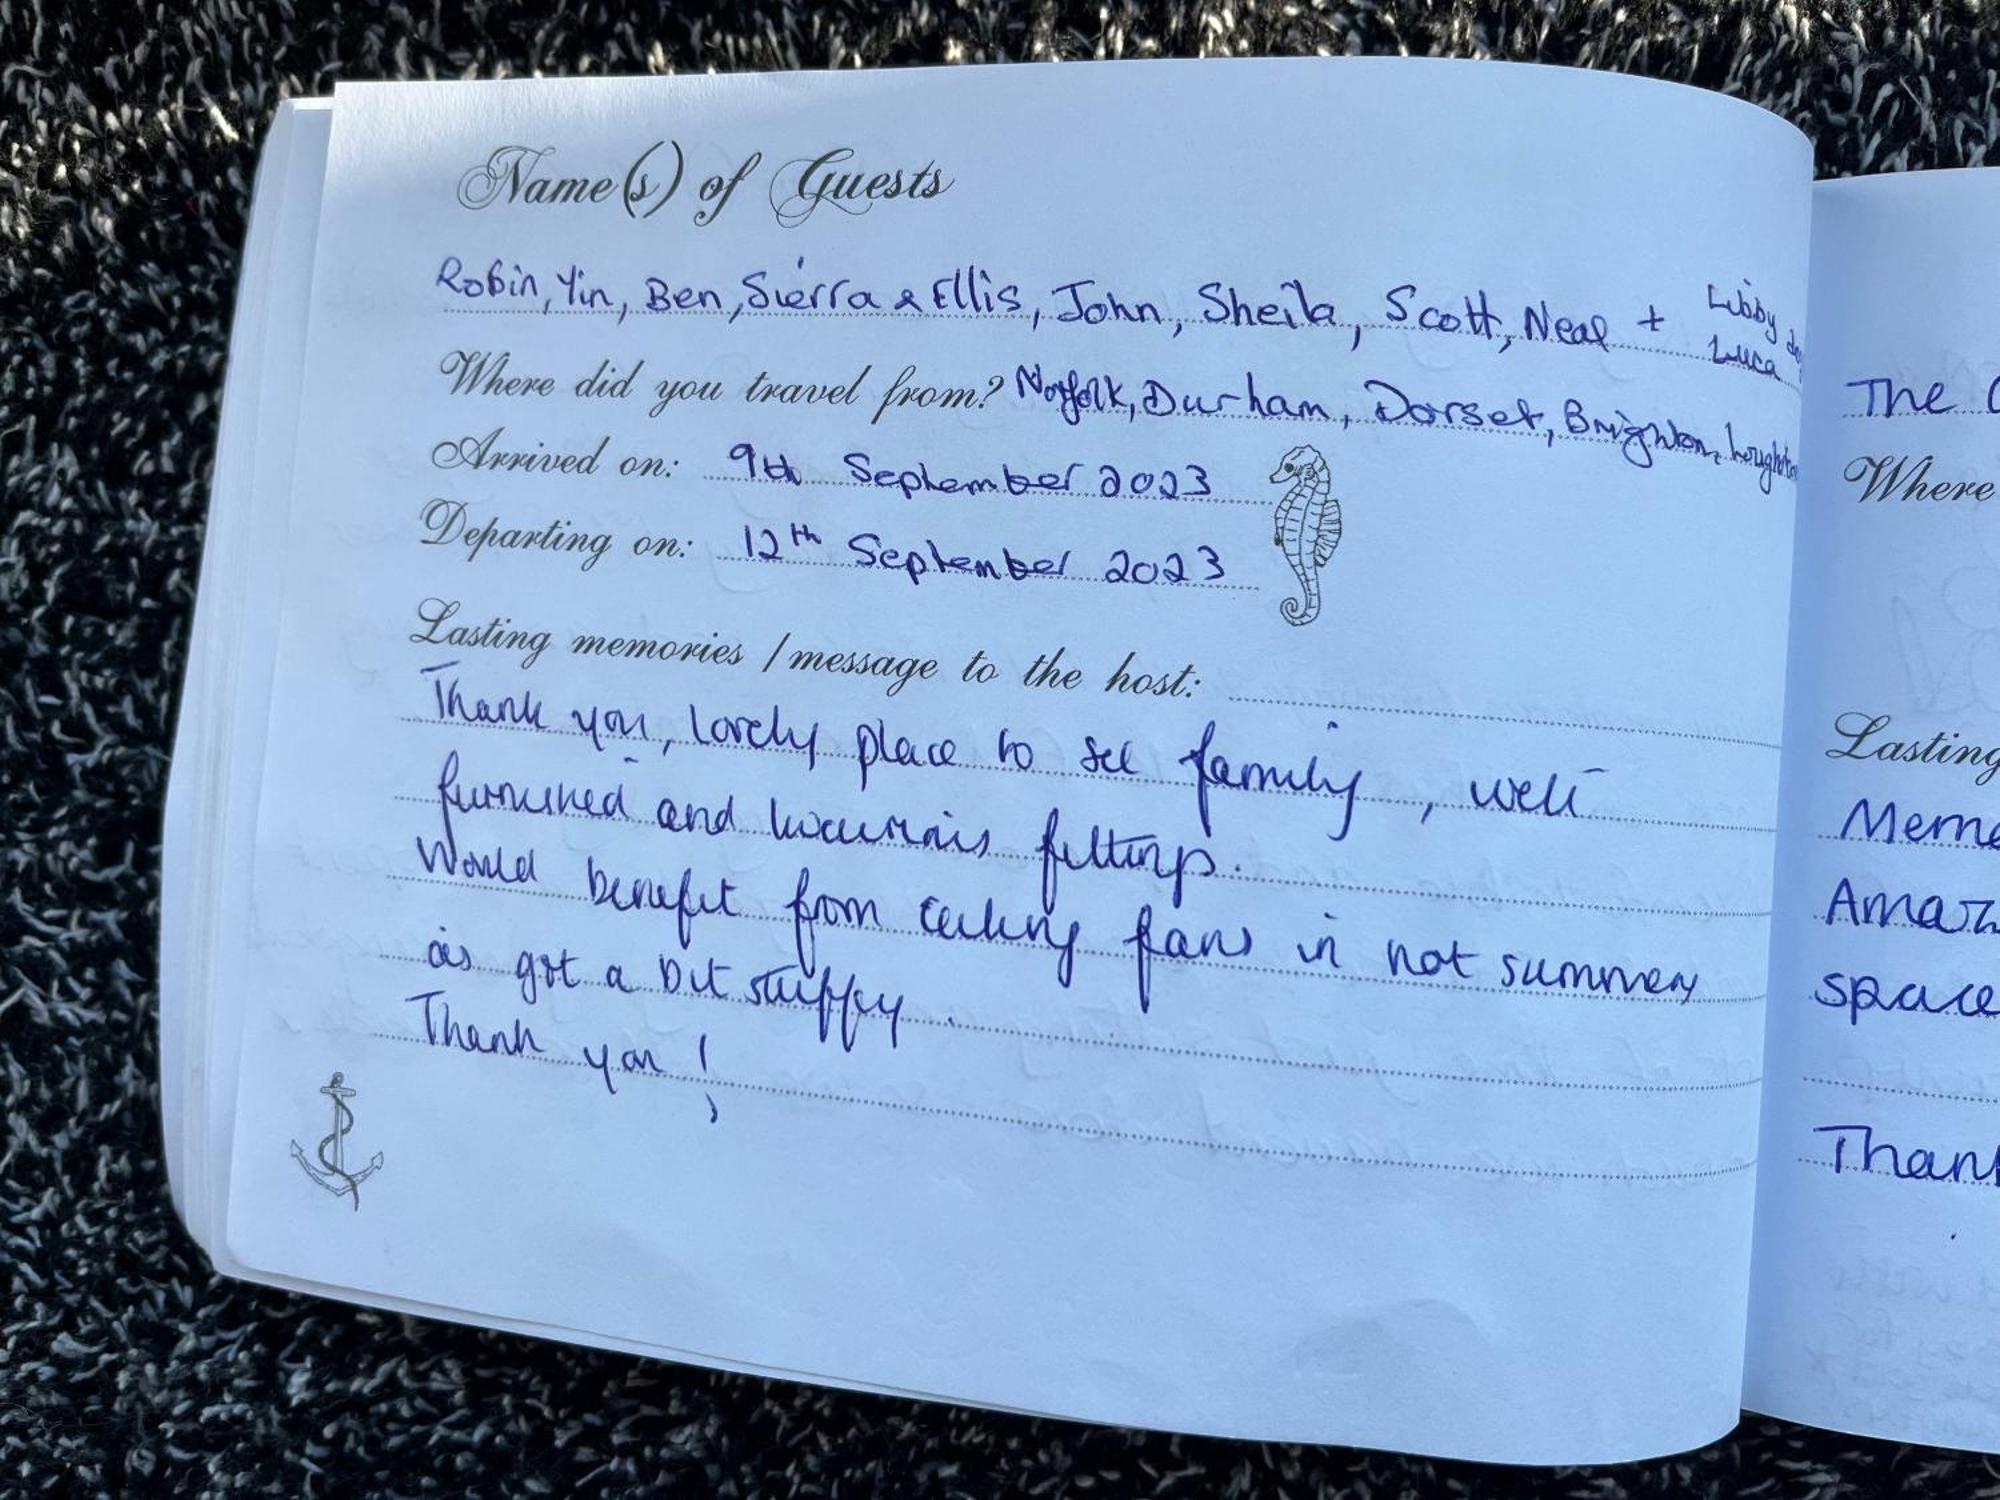 Name(s) of Guests
Robin, Yin, Ben, Sierra & Ellis, John, Sheila, Scott, Neal + Libby
Luca
Where did you travel from? Norfolk, Durham, Dorset, Brighton,
Arrived on: 9th September 2023
Departing on: 12th September 2023
Lasting memories / message to the host:
Thank you, lovely place to see family, well
furnished and luxurious fittings.
Would benefit from ceiling fans in hot summer
as got a bit stuffy.
Thank you!
The
Where
Lasting
Thank